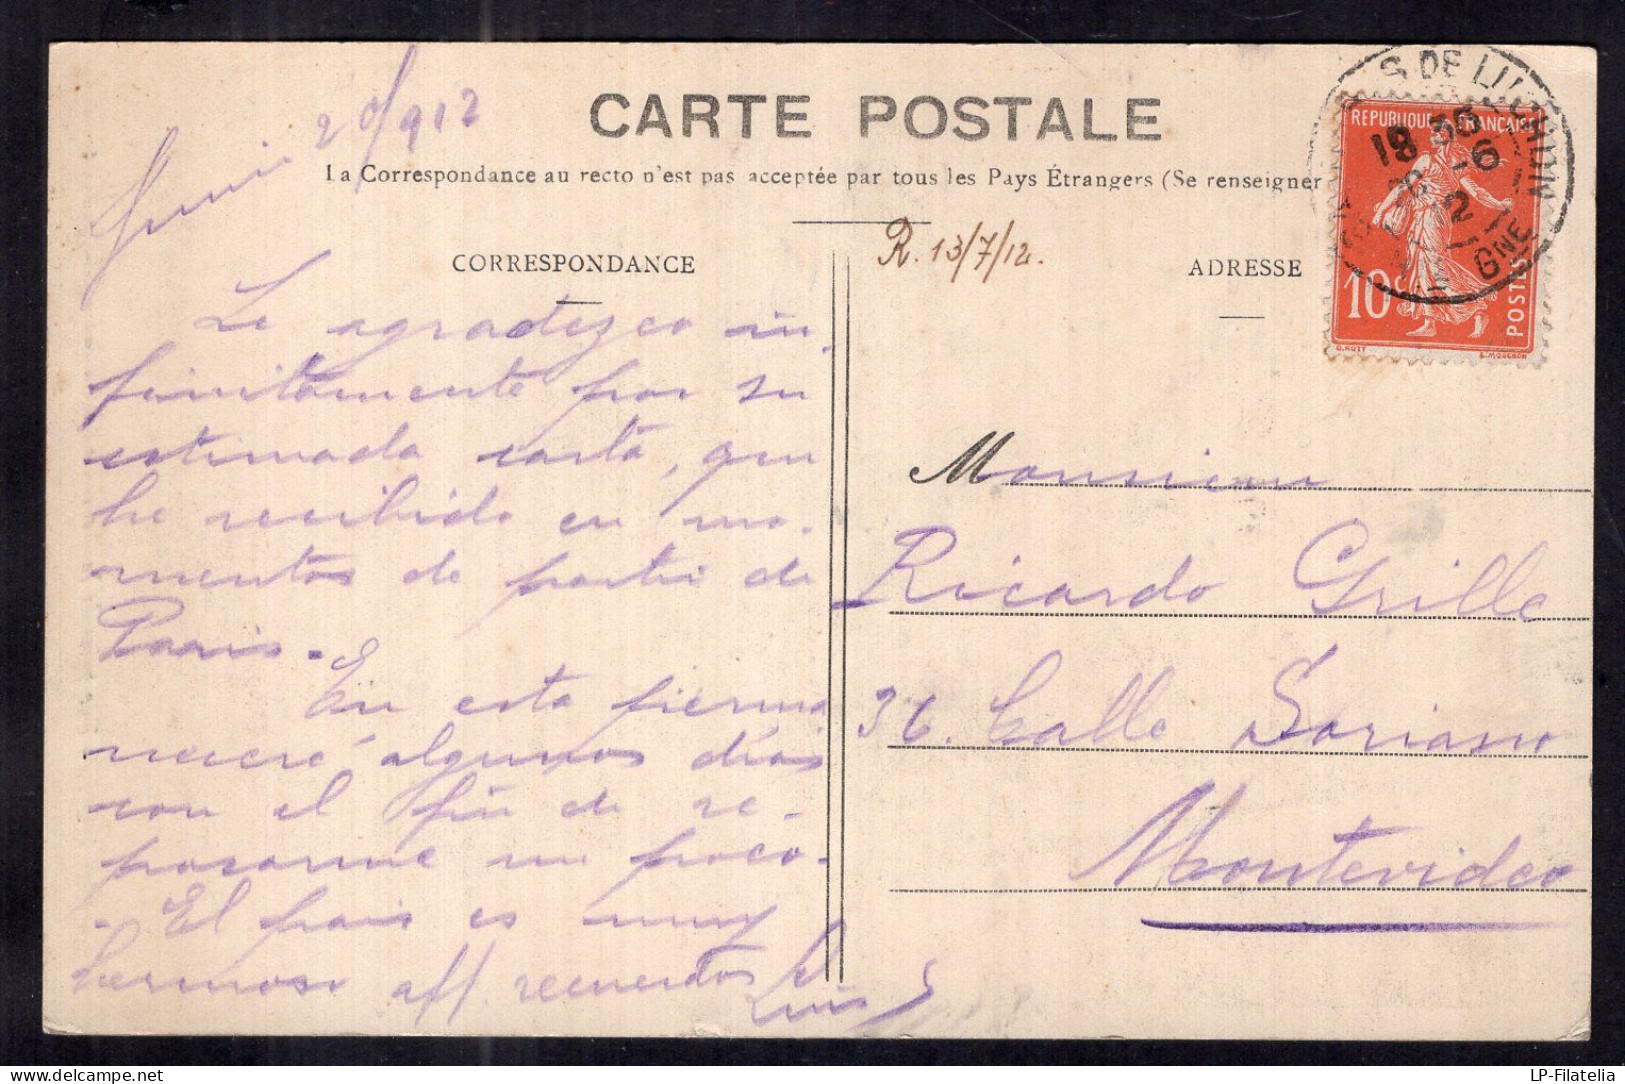 Junio 20/912
CARTE POSTALE
La Correspondance au recto n'est pas acceptée par tous les Pays Étrangers (Se renseigner
CORRESPONDANCE
Le agradezco in-
finitamente por su
estimada carta, que
he recibido en mo-
mentos de partir de
Paris.
En esta
algunos dias
con el fin de re-
posarme un poco.
- El pais es muy
hermoso aff. recuerdos
Luis S
R. 13/7/12.
ADRESSE
REPUBLIQUE FRANÇAISE
10c
POSTES
O. ROTY
E. MOUCHON
S DE LUCHON
18 30
-6
12
GNE
Monsieur
Ricardo Grille
36. Calle Soriano
Montevideo
LP-Filatelia